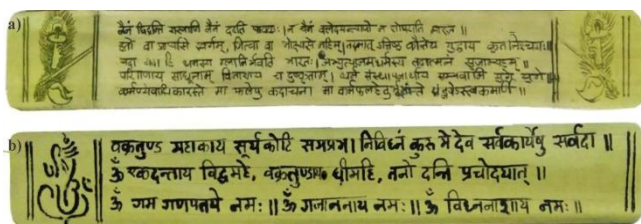 a)
नैनं छिद्रन्ति शस्त्राणि नैनं दहति पावकः । न चैनं क्लेदयन्त्यापो न शोषयति मारुत ॥
हतो वा प्राप्यसि स्वर्गम्, जित्वा वा भोक्ष्यसे महिम् । तस्मात् उत्तिष्ठ कौन्तेय युद्धाय कृतनिश्चयः ॥
यदा यदा हि धर्मस्य ग्लानिर्भवति भारतः । अभ्युत्थानमधर्मस्य तदात्मानं सृजाम्यहम् ॥
परित्राणाय साधूनाम् विनाशाय च दुष्कृताम् । धर्म संस्थापनार्थाय सम्भवामि युगे युगे ॥
कर्मण्येवाधिकारस्ते मा फलेषु कदाचना । मा कर्मफलहेतुर्भूर्मा ते
b)
वक्रतुण्ड महाकाय सूर्य कोटि समप्रभा । निर्विघ्नं कुरु मे देव सर्वकार्येषु सर्वदा ॥
ॐ एकदन्ताय विद्महे, वक्रतुण्डाय धीमहि, तनो दन्ति प्रचोदयात् ॥
ॐ गम गणपतये नमः ॥ ॐ गजाननाय नमः ॥ ॐ विघ्ननाशाय नमः ॥